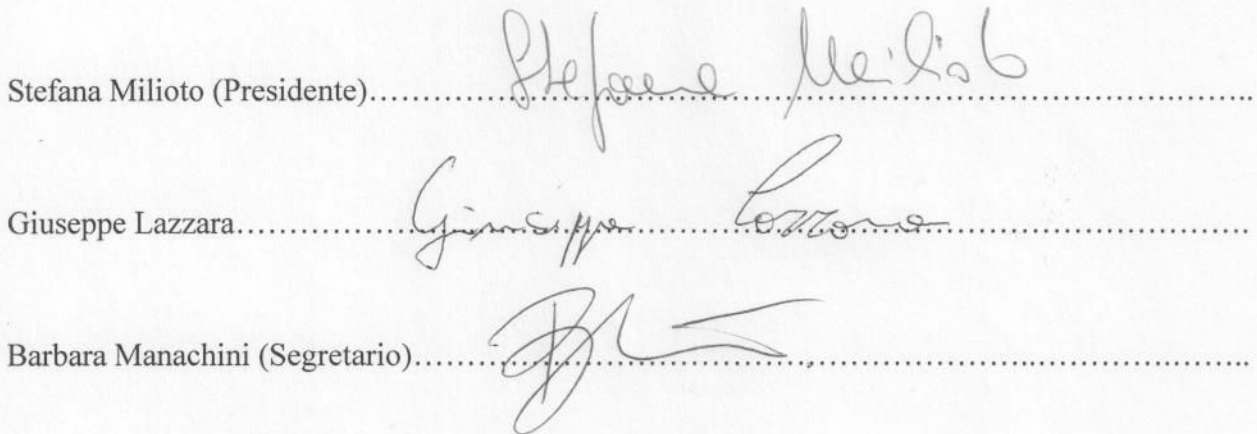 Stefana Milioto (Presidente)……………Stefana Milioto……………………
Giuseppe Lazzara……………Giuseppe Lazzara……………………
Barbara Manachini (Segretario)……………………………………